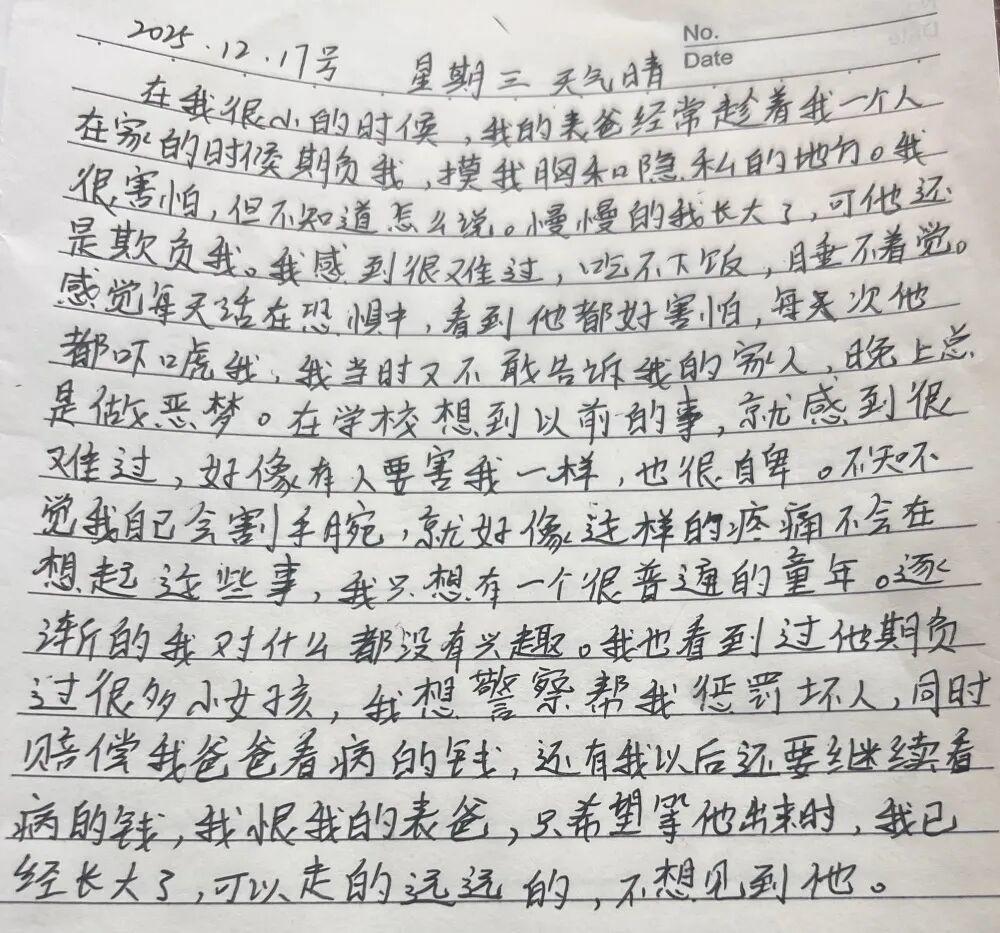 No.
Date
2025.12.17号 星期三 天气晴
在我很小的时候，我的表爸经常趁着我一个人
在家的时候期负我，摸我胸和隐私的地方。我
很害怕，但不知道怎么说。慢慢的我长大了，可他还
是欺负我。我感到很难过，吃不下饭，睡不着觉。
感觉每天活在恐惧中，看到他都好害怕，每天次他
都吓唬我，我当时又不敢告诉我的家人，晚上总
是做恶梦。在学校想到以前的事，就感到很
难过，好像有人要害我一样，也很自卑。不知不
觉我自己会割手腕，就好像这样的疼痛不会在
想起这些事，我只想有一个很普通的童年。逐
渐的我对什么都没有兴趣。我也看到过他期负
过很多小女孩，我想警察帮我惩罚坏人，同时
赔偿我爸爸看病的钱，还有我以后还要继续看
病的钱，我恨我的表爸，只希望等他出来时，我已
经长大了，可以走的远远的，不想见到他。